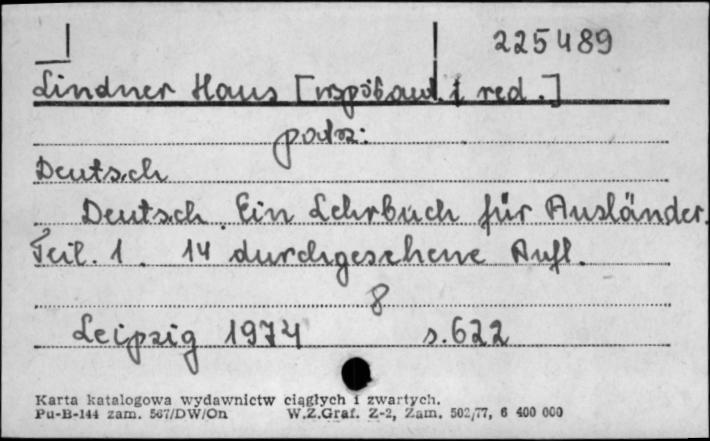 225489
Lindner Hans [współaut. i red.]
patrz:
Deutsch
Deutsch. Ein Lehrbuch für Ausländer.
Teil. 1. 14 durchgesehene Aufl.
8
Leipzig 1974 s.622
Karta katalogowa wydawnictw ciągłych i zwartych.
Pu-B-144 zam. 567/DW/On W.Z.Graf. Z-2, Zam. 502/77, 6 400 000